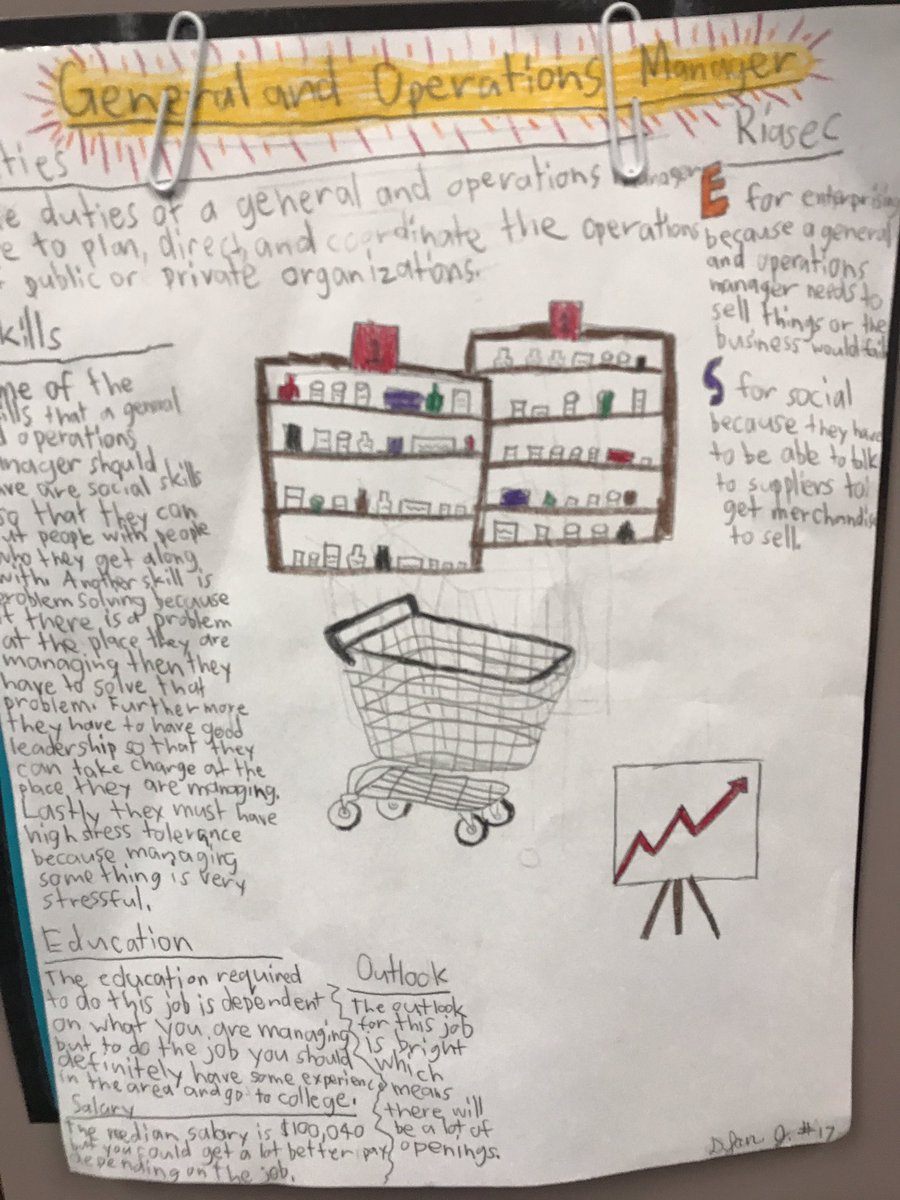 General and Operations Manager
ties
e duties of a general and operations
e to plan, direct, and coordinate the operations
public or private organizations.
Riasec
E for enterprising
because a general
and operations
manager needs to
sell things or the
business would fail
S for social
because they have
to be able to talk
to suppliers to
get merchandis
to sell.
kills
me of the
ills that a general
d operations
nager should
ave are social skills
so that they can
ut people with people
who they get along
with. Another skill is
problem solving because
if there is a problem
at the place they are
managing then they
have to solve that
problem. Furthermore
they have to have good
leadership so that they
can take charge at the
place they are managing.
Lastly they must have
high stress tolerance
because managing
something is very
stressful.
1
1
Education
The education required
to do this job is dependent
on what you are managing
but to do the job you should
definitely have some experience
in the area and go to college.
Salary
The median salary is $100,040
but you could get a lot better pay
depending on the job.
Outlook
The outlook
for this job
is bright
which
means
there will
be a lot of
openings.
J. #17